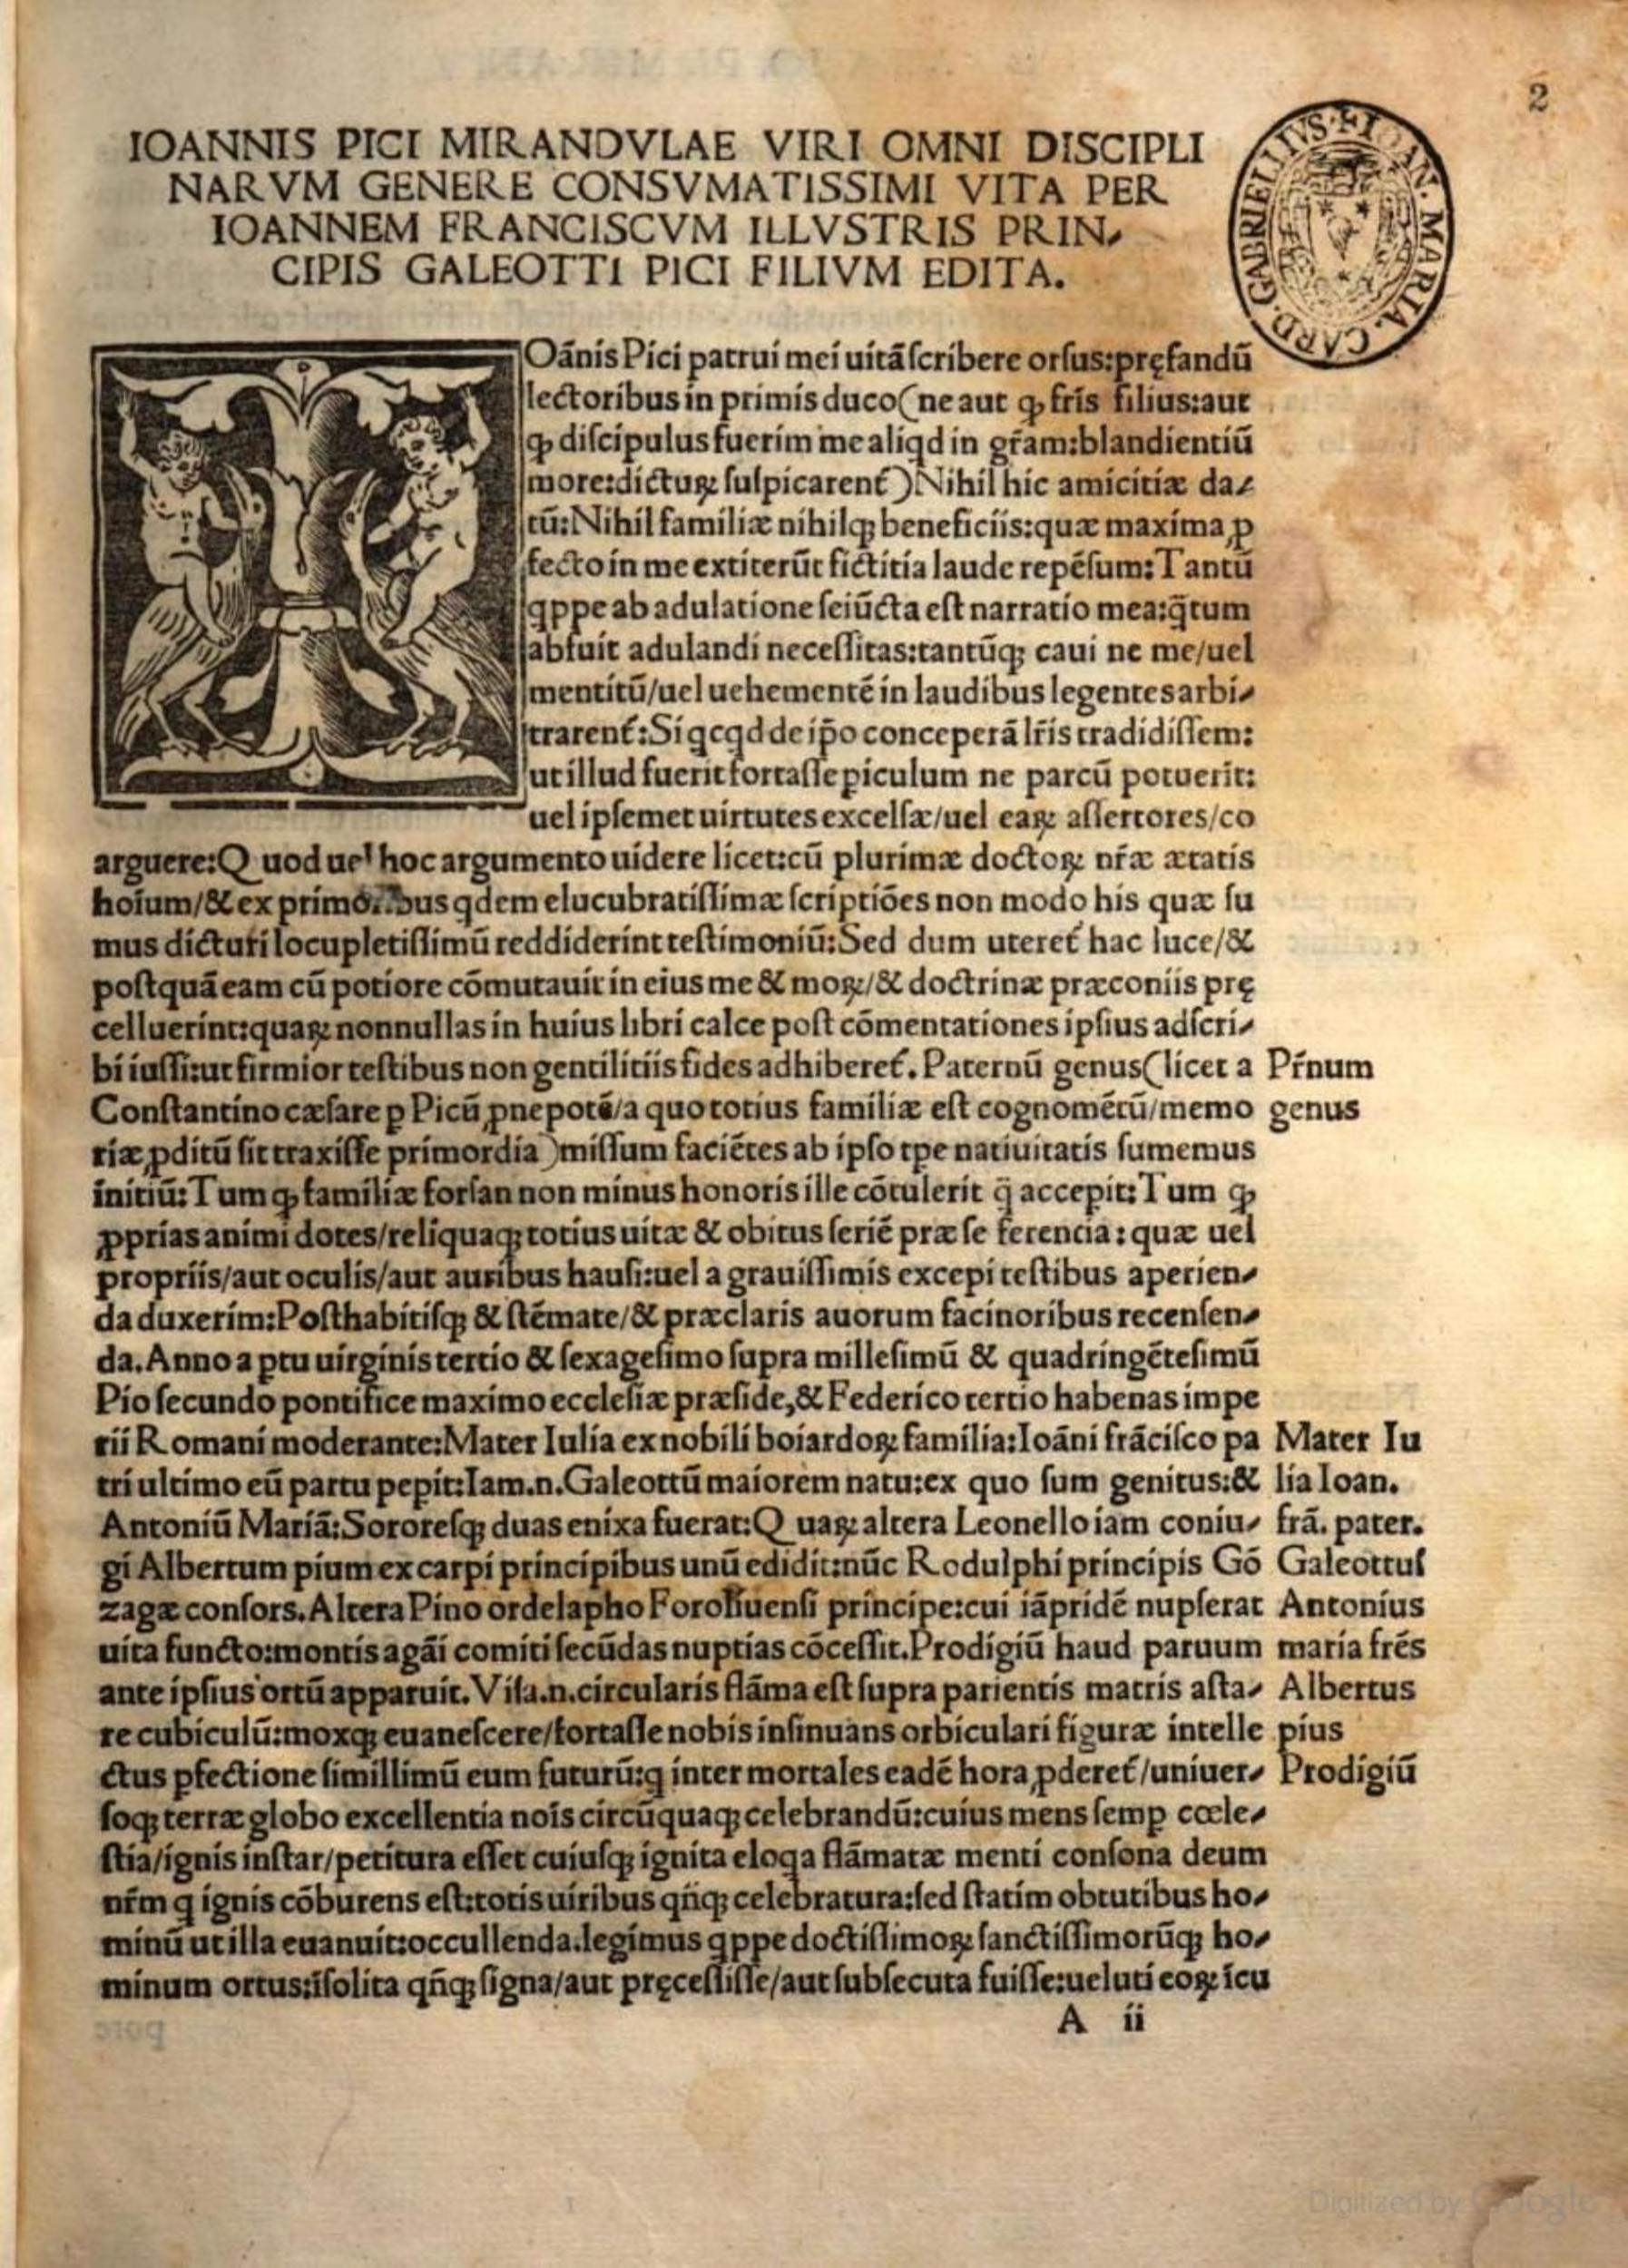 2
IOANNIS PICI MIRANDVLAE VIRI OMNI DISCIPLI
NARVM GENERE CONSVMATISSIMI VITA PER
IOANNEM FRANCISCVM ILLVSTRIS PRIN-
CIPIS GALEOTTI PICI FILIVM EDITA.
GABRIELLIVS · F · IOAN. MARIA. CARD.
Oãnis Pici patrui mei uitã ſcribere orſus: pręfandũ
lectoribus in primis duco (ne aut ꝙ fr̃is filius: aut
ꝙ diſcipulus fuerim me aliqd in gr̃am: blandientiũ
more: dictuꝝ ſuſpicarent̃) Nihil hic amicitiæ da-
tũ: Nihil familiæ nihilqꝫ beneficiis: quæ maxima ꝓ
fecto in me extiterũt fictitia laude repẽſum: Tantũ
qppe ab adulatione ſeiũcta eſt narratio mea: q̃tum
abfuit adulandi neceſſitas: tantũqꝫ caui ne me/uel
mentitũ/uel uehementẽ in laudibus legentes arbi-
trarent̃: Si qcqd de ip̃o conceperã lr̃is tradidiſſem:
ut illud fuerit fortaſſe ꝑiculum ne parcũ potuerit:
uel ipſemet uirtutes excelſæ/uel eaꝝ aſſertores/co
arguere: Quod uel hoc argumento uidere licet: cũ plurimæ doctoꝝ nr̃æ ætatis
hoĩum/& ex primoribus qdem elucubratiſſimæ ſcriptiões non modo his quæ ſu
mus dicturi locupletiſſimũ reddiderint teſtimoniũ: Sed dum uteret̃ hac luce/&
poſtquã eam cũ potiore cõmutauit in eius me & moꝝ/& doctrinæ præconiis prę
celluerint: quaꝝ nonnullas in huius libri calce poſt cõmentationes ipſius adſcri-
bi iuſſi: ut firmior teſtibus non gentilitiis fides adhiberet̃. Paternũ genus (licet a
Pr̃num
Conſtantino cæſare ꝑ Picũ ꝓnepotẽ/a quo totius familiæ eſt cognomẽtũ/memo
genus
riæ ꝓditũ ſit traxiſſe primordia) miſſum faciẽtes ab ipſo tꝑe natiuitatis ſumemus
initiũ: Tum ꝙ familiæ forſan non minus honoris ille cõtulerit q̃ accepit: Tum ꝙ
ꝓprias animi dotes/reliquaqꝫ totius uitæ & obitus ſeriẽ præ ſe ferencia: quæ uel
propriis/aut oculis/aut auribus hauſi: uel a grauiſſimis excepi teſtibus aperien-
da duxerim: Poſthabitiſqꝫ & ſtẽmate/& præclaris auorum facinoribus recenſen-
da. Anno a ꝑtu uirginis tertio & ſexageſimo ſupra milleſimũ & quadringẽteſimũ
Pio ſecundo pontifice maximo eccleſiæ præſide, & Federico tertio habenas impe
rii Romani moderante: Mater Iulia ex nobili boiardoꝝ familia: Ioãni frãciſco pa
Mater Iu
tri ultimo eũ partu peꝑit: Iam.n. Galeottũ maiorem natu: ex quo ſum genitus: &
lia Ioan.
Antoniũ Mariã: Sororeſqꝫ duas enixa fuerat: Quaꝝ altera Leonello iam coniu-
frã. pater.
gi Albertum pium ex carpi principibus unũ edidit: nũc Rodulphi principis Gõ
Galeottuſ
zagæ conſors. Altera Pino ordelapho Foroliuenſi principe: cui iãpridẽ nupſerat
Antonius
uita functo: montis agãi comiti ſecũdas nuptias cõceſſit. Prodigiũ haud paruum
maria frẽs
ante ipſius ortũ apparuit. Viſa.n. circularis flãma eſt ſupra parientis matris aſta-
Albertus
re cubiculũ: moxqꝫ euaneſcere/fortaſſe nobis inſinuans orbiculari figuræ intelle
pius
ctus ꝑfectione ſimillimũ eum futurũ: q inter mortales eadẽ hora ꝓderet̃/uniuer-
Prodigiũ
ſoqꝫ terræ globo excellentia noĩs circũquaqꝫ celebrandũ: cuius mens ſemꝑ cœle-
ſtia/ignis inſtar/petitura eſſet cuiuſqꝫ ignita eloqa flãmatæ menti conſona deum
nr̃m q ignis cõburens eſt: totis uiribus qñqꝫ celebratura: ſed ſtatim obtutibus ho-
minũ ut illa euanuit: occullenda. legimus qppe doctiſſimoꝝ ſanctiſſimorũqꝫ ho-
minum ortus: ĩſolita qñqꝫ ſigna/aut pręceſſiſſe/aut ſubſecuta fuiſſe: ueluti eoꝝ ĩcu
A ii
Digitized by Google